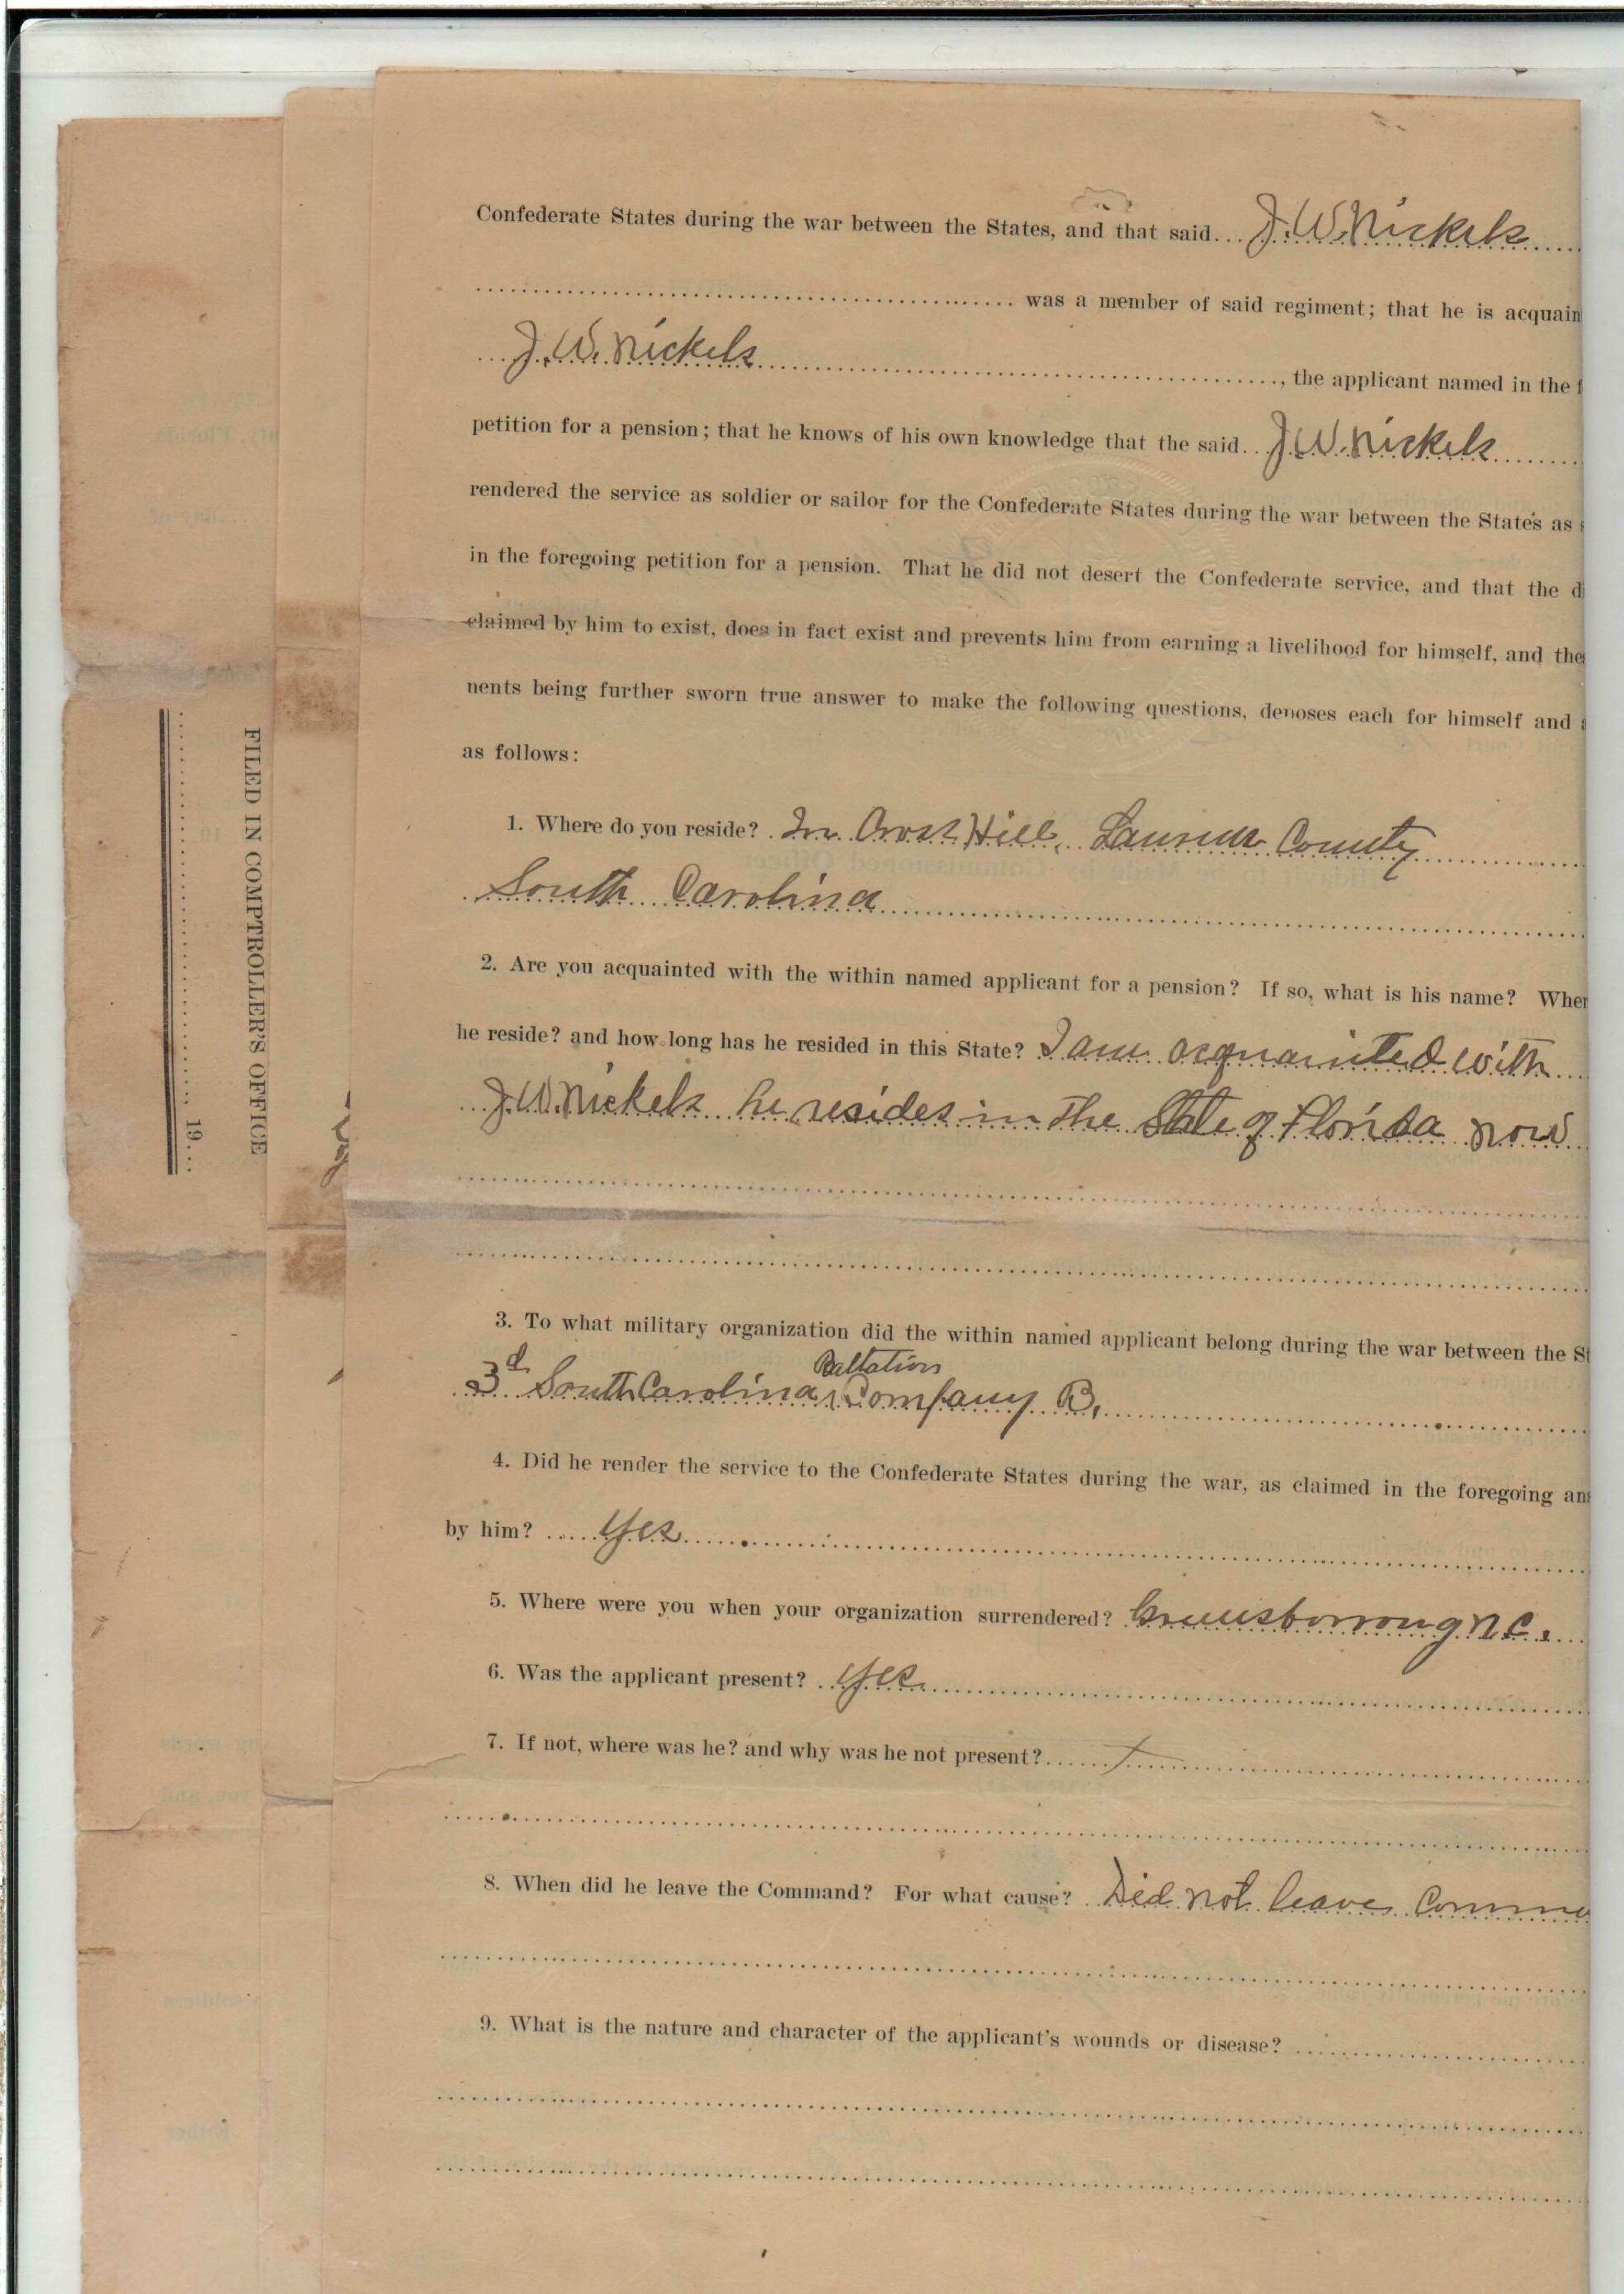 Confederate States during the war between the States, and that said... J. W. Nickels
was a member of said regiment; that he is acquain
J. W. Nickels, the applicant named in the f
petition for a pension; that he knows of his own knowledge that the said.. J. W. Nickels
rendered the service as soldier or sailor for the Confederate States during the war between the States as s
in the foregoing petition for a pension. That he did not desert the Confederate service, and that the di
claimed by him to exist, does in fact exist and prevents him from earning a livelihood for himself, and the
nents being further sworn true answer to make the following questions, deposes each for himself and
as follows:
1. Where do you reside? In Cross Hill, Laurens County
South Carolina
2. Are you acquainted with the within named applicant for a pension? If so, what is his name? Wher
he reside? and how long has he resided in this State? I am acquainted with
J. W. Nickels he resides in the State of Florida now
3. To what military organization did the within named applicant belong during the war between the St
Baltation
3d South Carolina, Company B,
4. Did he render the service to the Confederate States during the war, as claimed in the foregoing ans
by him? Yes
5. Where were you when your organization surrendered? Greensborroug N.C.
6. Was the applicant present? Yes
7. If not, where was he? and why was he not present?
8. When did he leave the Command? For what cause? Did not leave Comma
9. What is the nature and character of the applicant's wounds or disease?
FILED IN COMPTROLLER'S OFFICE
19....